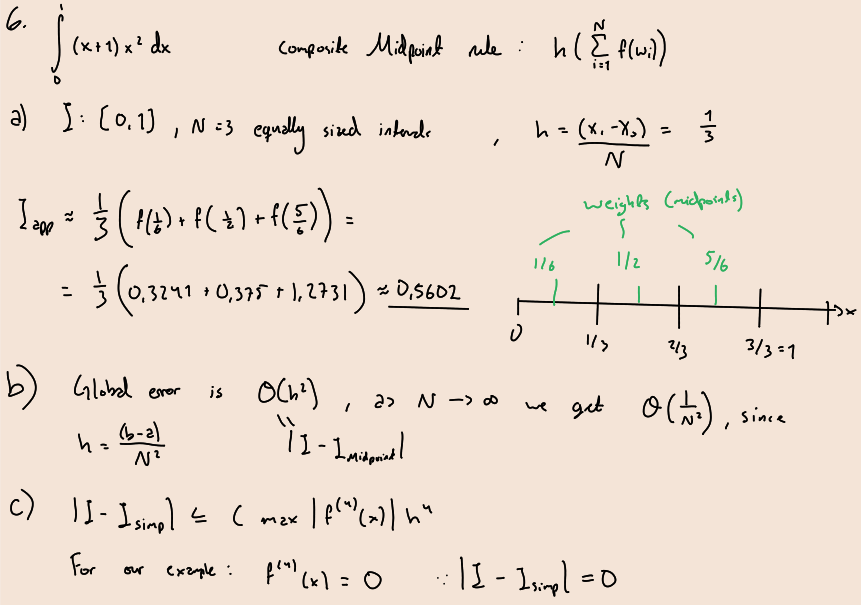 6. ∫₀¹ (x+1) x² dx    Composite Midpoint rule : h ( Σ_{i=1}^{N} f(w_i) )
a) I : [0,1] , N=3 equally sized intervals , h = (x₁ - x₀)/N = 1/3
I_app ≈ 1/3 ( f(1/6) + f(1/2) + f(5/6) ) =
= 1/3 ( 0,3241 + 0,375 + 1,2731 ) ≈ 0,5602
weights (midpoints)
1/6 1/2 5/6
0 1/3 2/3 3/3 = 1 x
b) Global error is O(h²) , as N → ∞ we get O(1/N²) , since
h = (b-a)/N²    || |I - I_Midpoint|
c) |I - I_simp| ≤ C max |f⁽⁴⁾(x)| h⁴
For our example : f⁽⁴⁾(x) = 0 ∵ |I - I_simp| = 0